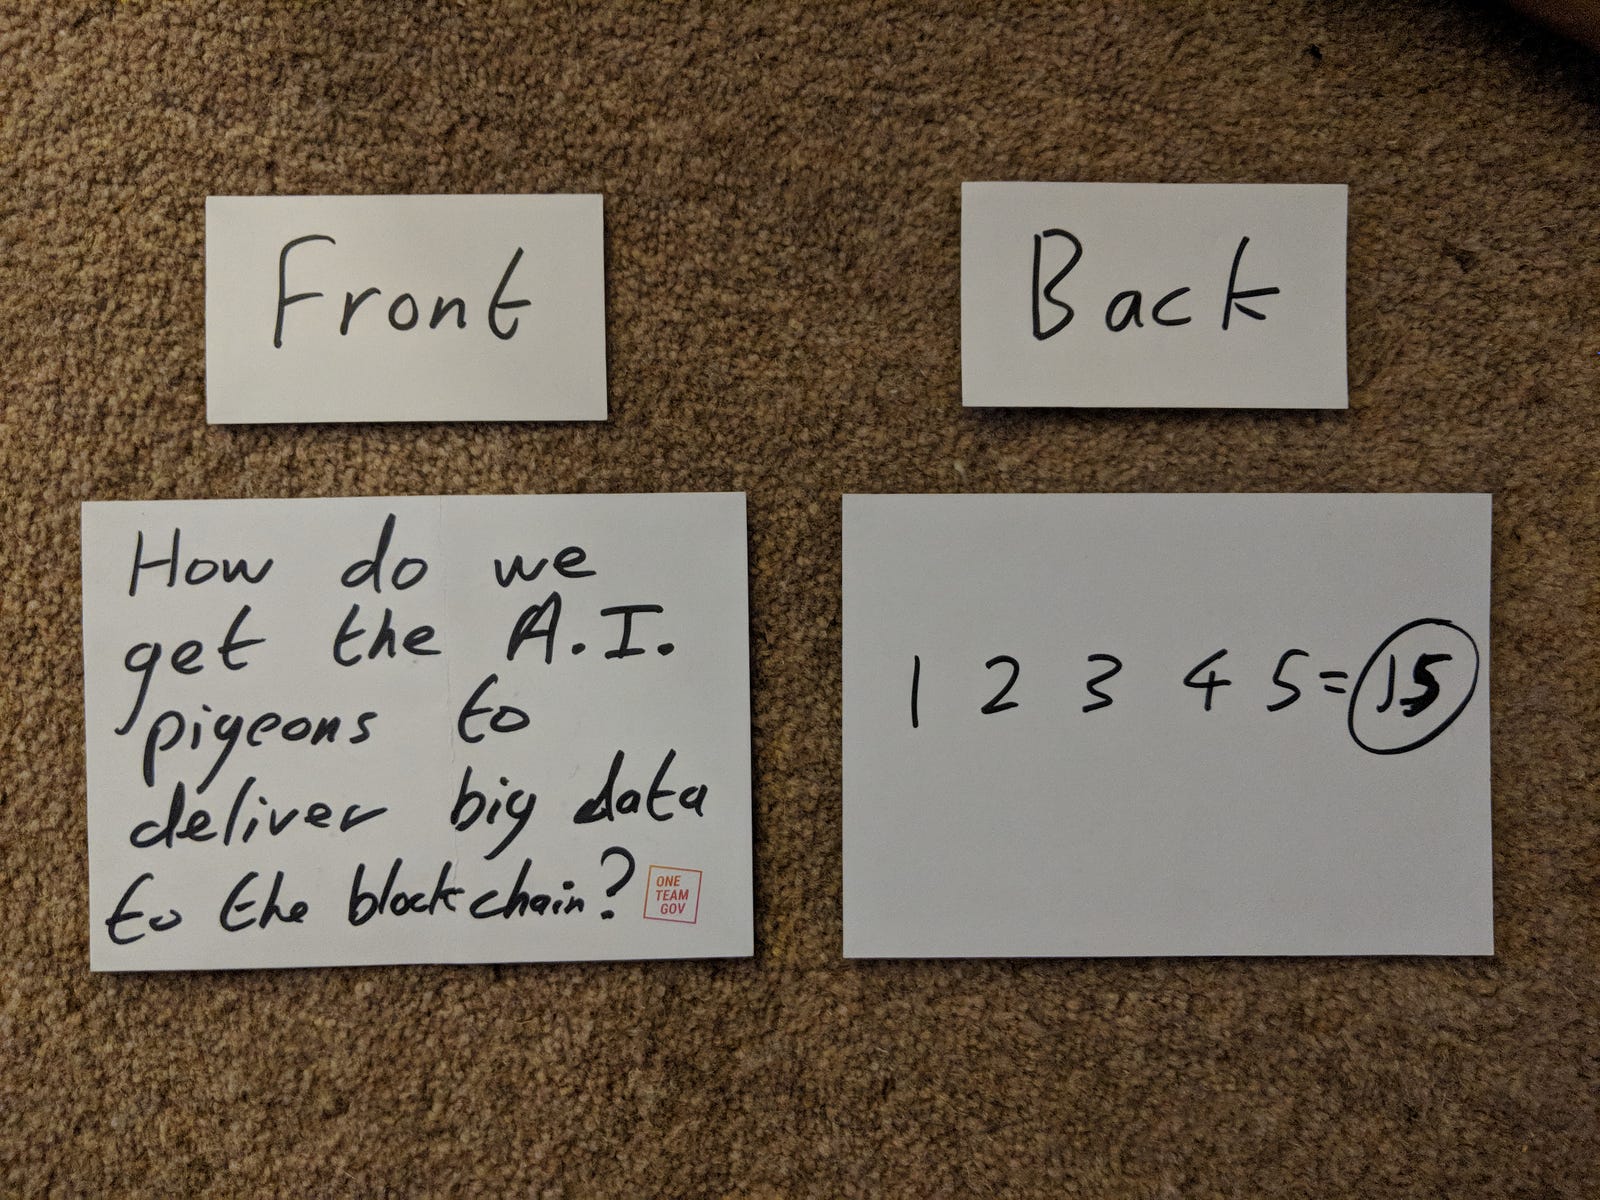 Front
Back
How do we
get the A.I.
pigeons to
deliver big data
to the blockchain?
ONE
TEAM
GOV
1 2 3 4 5 = 15